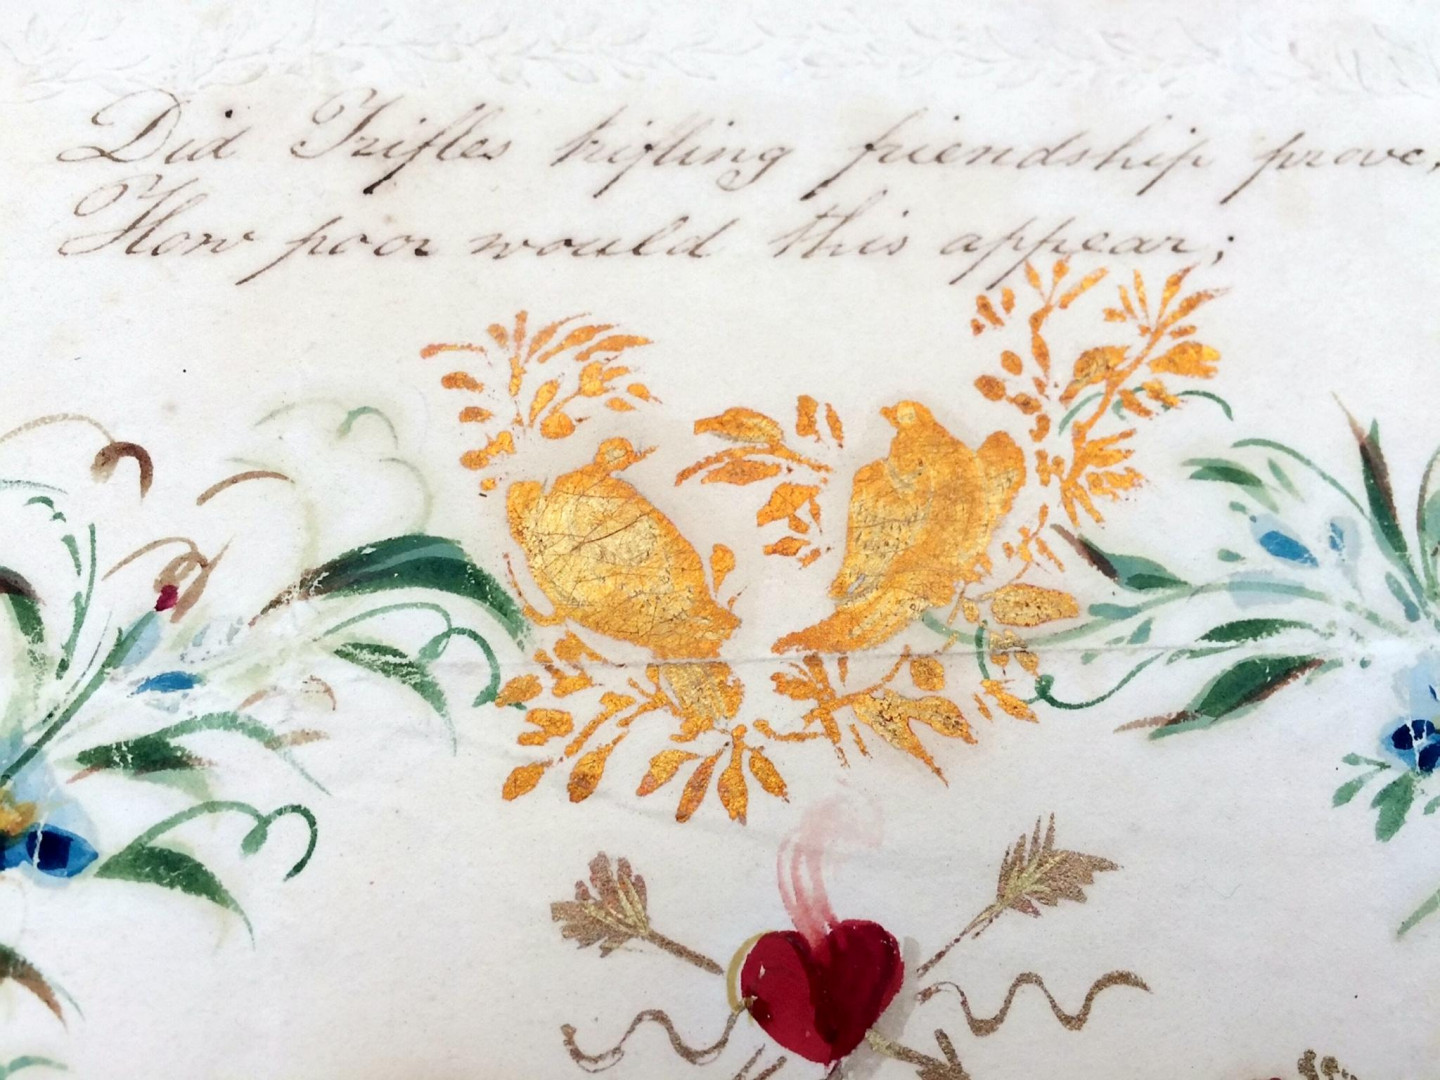 Did Trifles trifling friendship prove,
How poor would this appear;